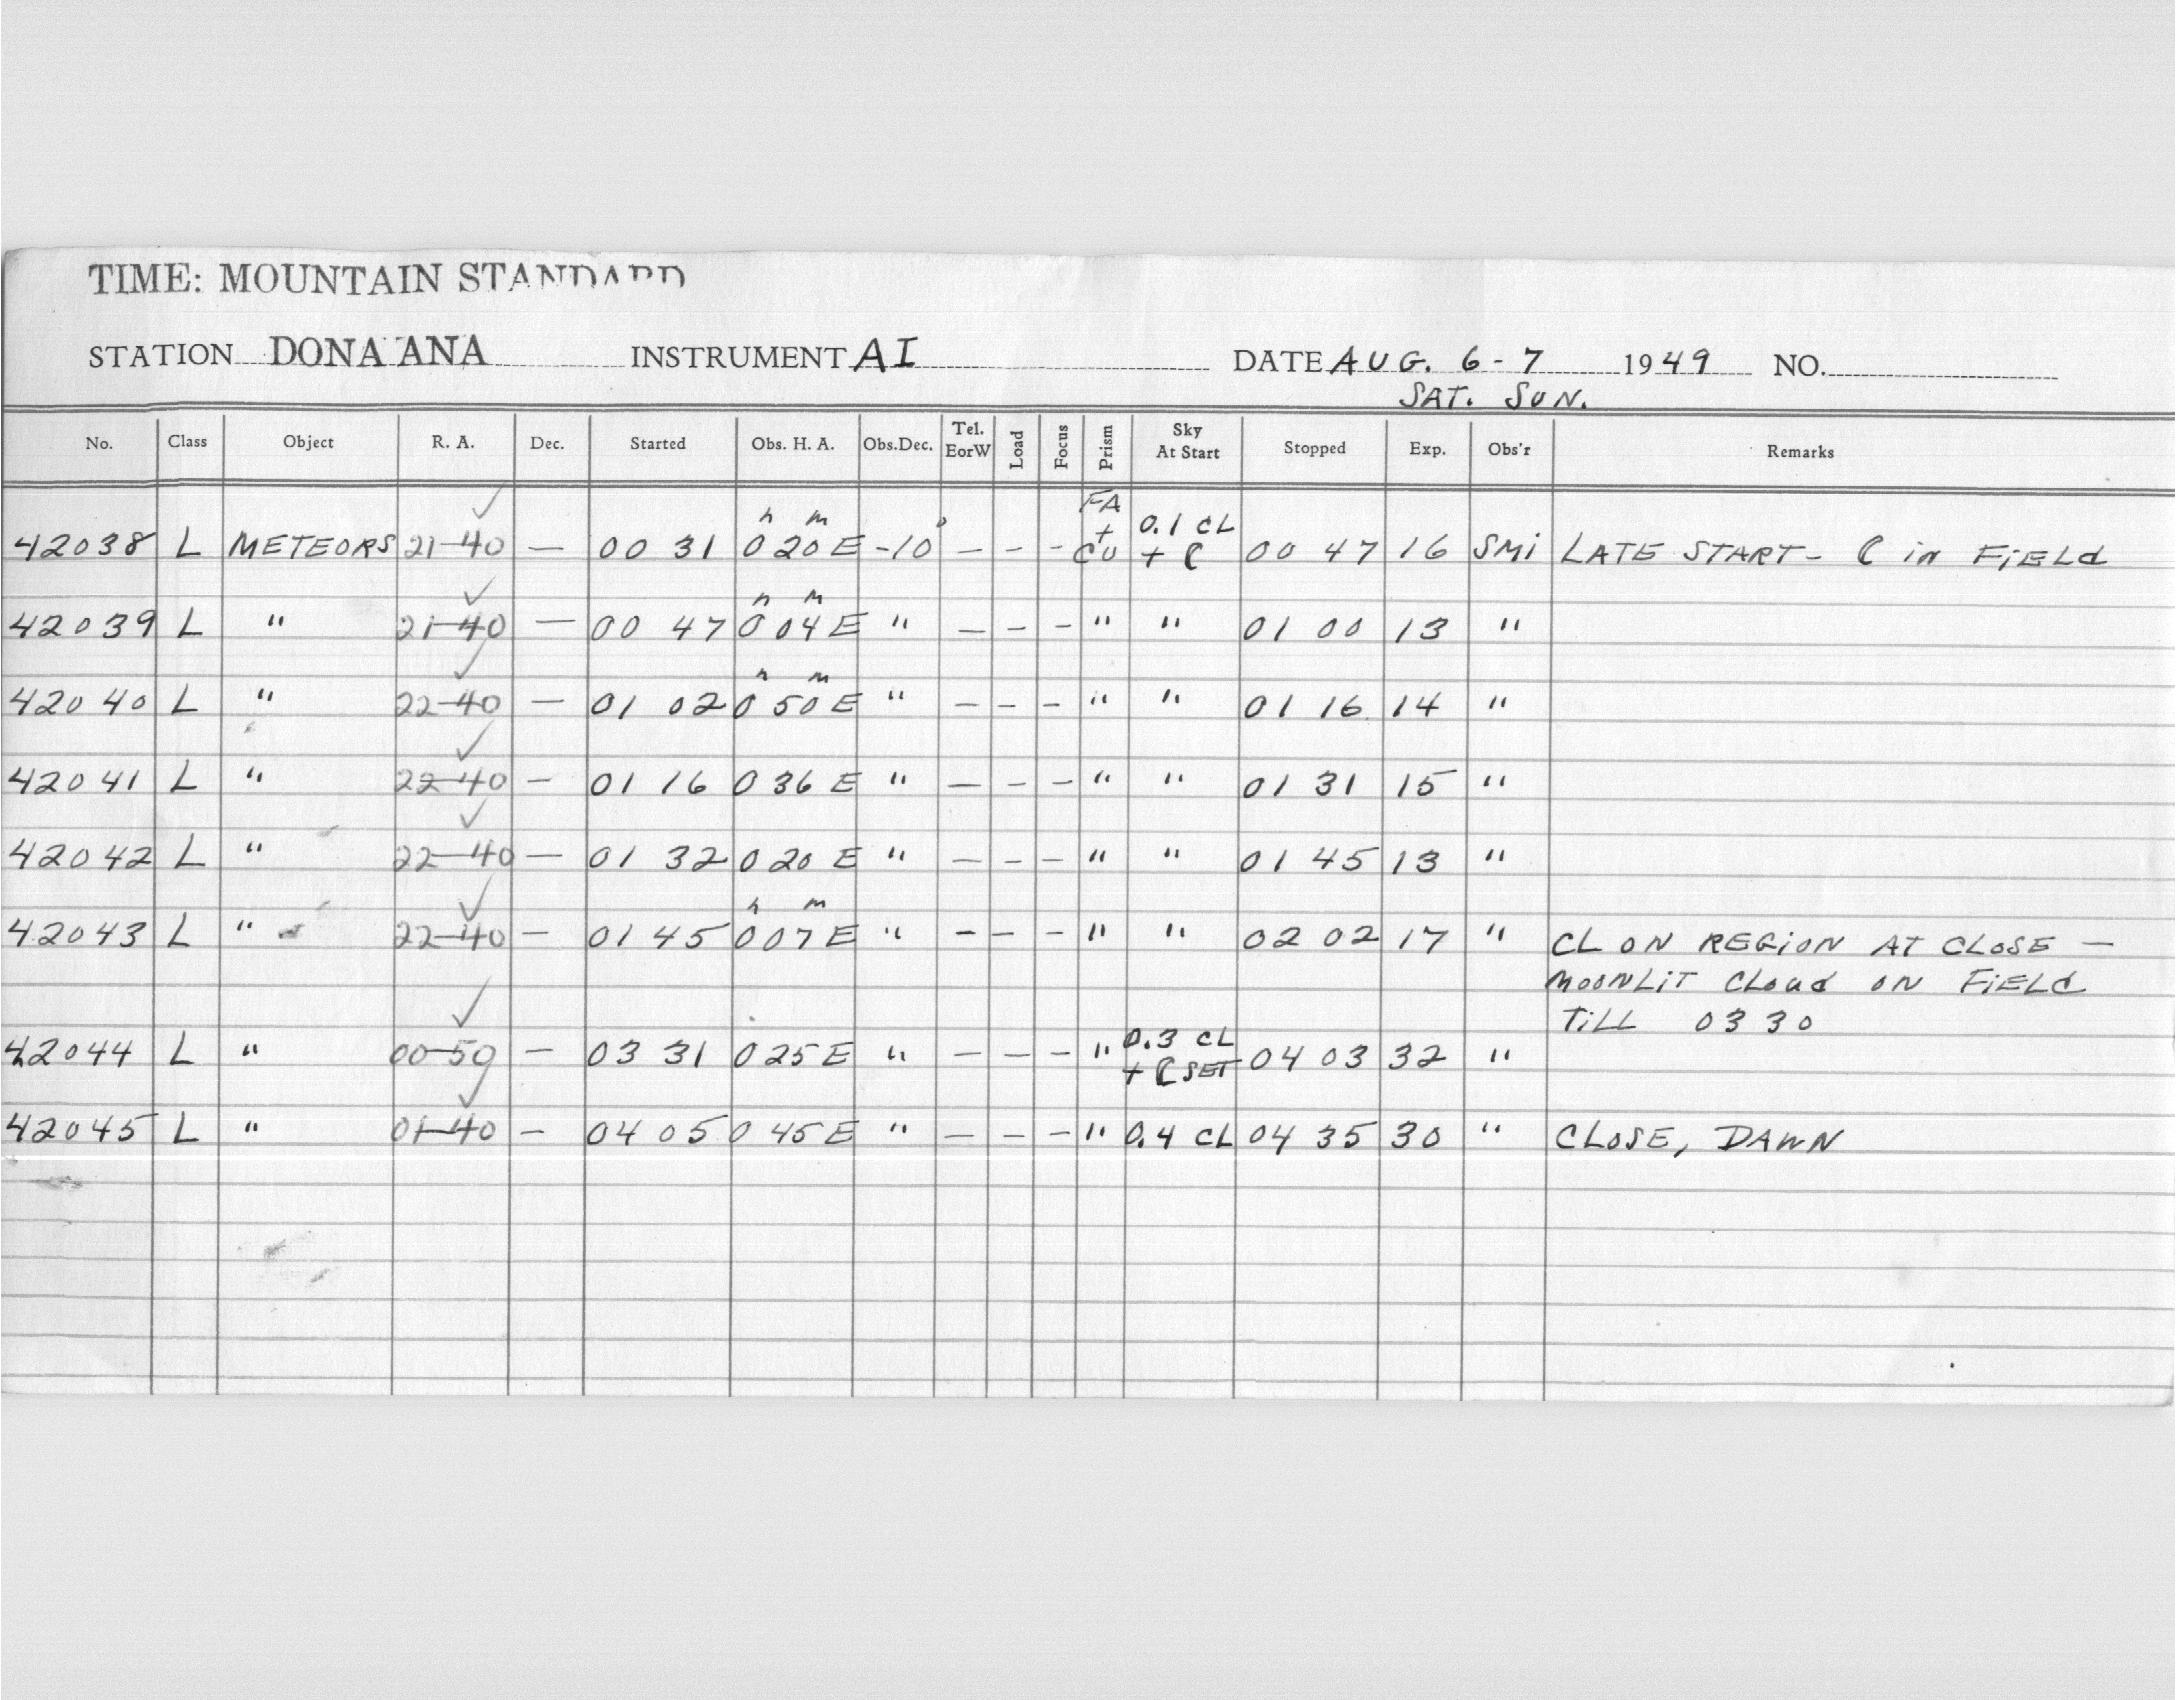 TIME: MOUNTAIN STANDARD
STATION DONA ANA INSTRUMENT AI DATE AUG. 6-7 1949 NO.
SAT. SUN.
No. Class Object R. A. Dec. Started Obs. H. A. Obs.Dec. Tel. EorW Load Focus Prism Sky At Start Stopped Exp. Obs'r Remarks
42038 L METEORS 21-40 — 00 31 0h 20m E -10° — - - FA + CU 0.1 CL + ☾ 00 47 16 SMi LATE START - ☾ in FiELd
42039 L " 21-40 — 00 47 0h 04m E " — - - " " 01 00 13 "
42040 L " 22-40 — 01 02 0h 50m E " — - - " " 01 16 14 "
42041 L " 22-40 — 01 16 0 36 E " — - - " " 01 31 15 "
42042 L " 22-40 — 01 32 0 20 E " — - - " " 01 45 13 "
42043 L " 22-40 — 01 45 0h 07m E " - - - " " 02 02 17 " CL ON REGiON AT CLOSE —
MOONLiT CLoud ON FiELd
TiLL 03 30
42044 L " 00-50 — 03 31 0 25 E " — - - " 0.3 CL + ☾ SET 04 03 32 "
42045 L " 01-40 — 04 05 0 45 E " — - - " 0.4 CL 04 35 30 " CLOSE, DAWN